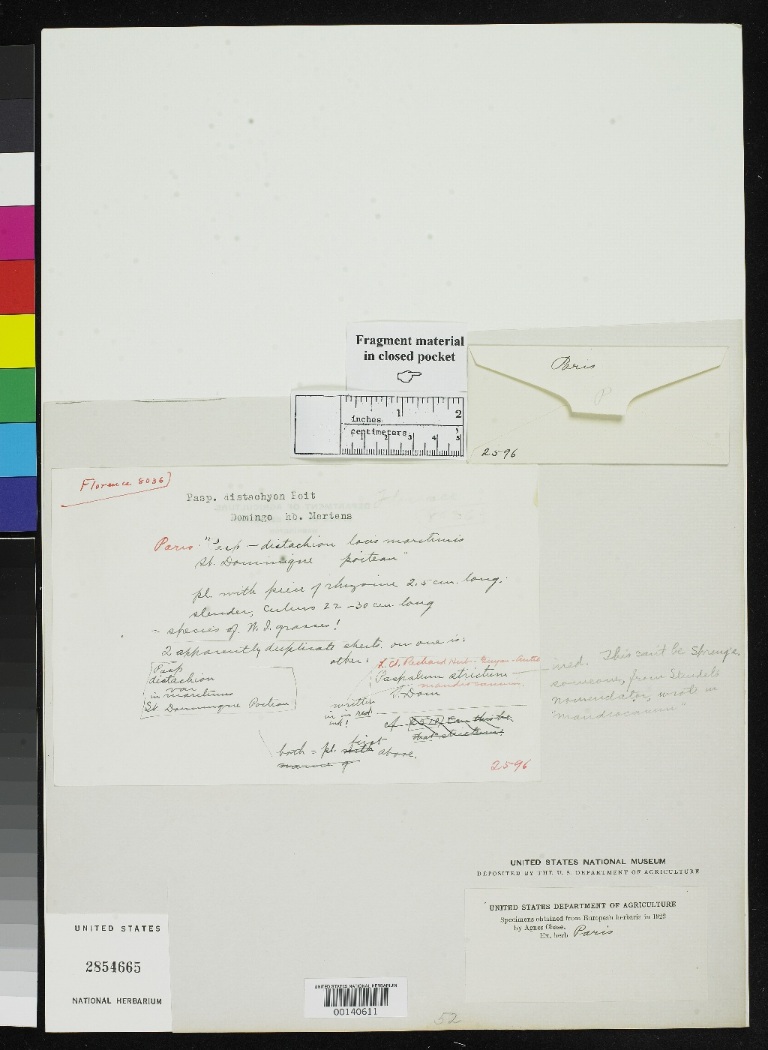 Fragment material
in closed pocket
inches 1 2
centimeters 1 2 3 4 5
Paris
P
2596
Florence 8036]
Pasp. distachyon Poit
Domingo hb. Mertens
Paris: "Pasp — distachion locis maretimis
St. Dominique poiteau"
pl with piece of rhizome 2.5 cm. long,
slender, culms 22-30 cm long
- species of W.I. grasses!
2 apparently duplicate sheets. on one is:
Pasp
distachion
in maritimis
St. Dominique Poiteau
other:
Paspalum strictum
S. Dom
mandiocanum
written
in red
ink!
cf
both = pl. first
above.
2596
red. This can't be Spreng.
someone, from Steudel's
nomenclator, wrote in
"mandiocanum"
UNITED STATES NATIONAL MUSEUM
DEPOSITED BY THE U. S. DEPARTMENT OF AGRICULTURE
UNITED STATES DEPARTMENT OF AGRICULTURE
Specimens obtained from European herbaria in 1922
by Agnes Chase.
Ex. herb. Paris
UNITED STATES
2854665
NATIONAL HERBARIUM
UNITED STATES NATIONAL HERBARIUM
00140611
52